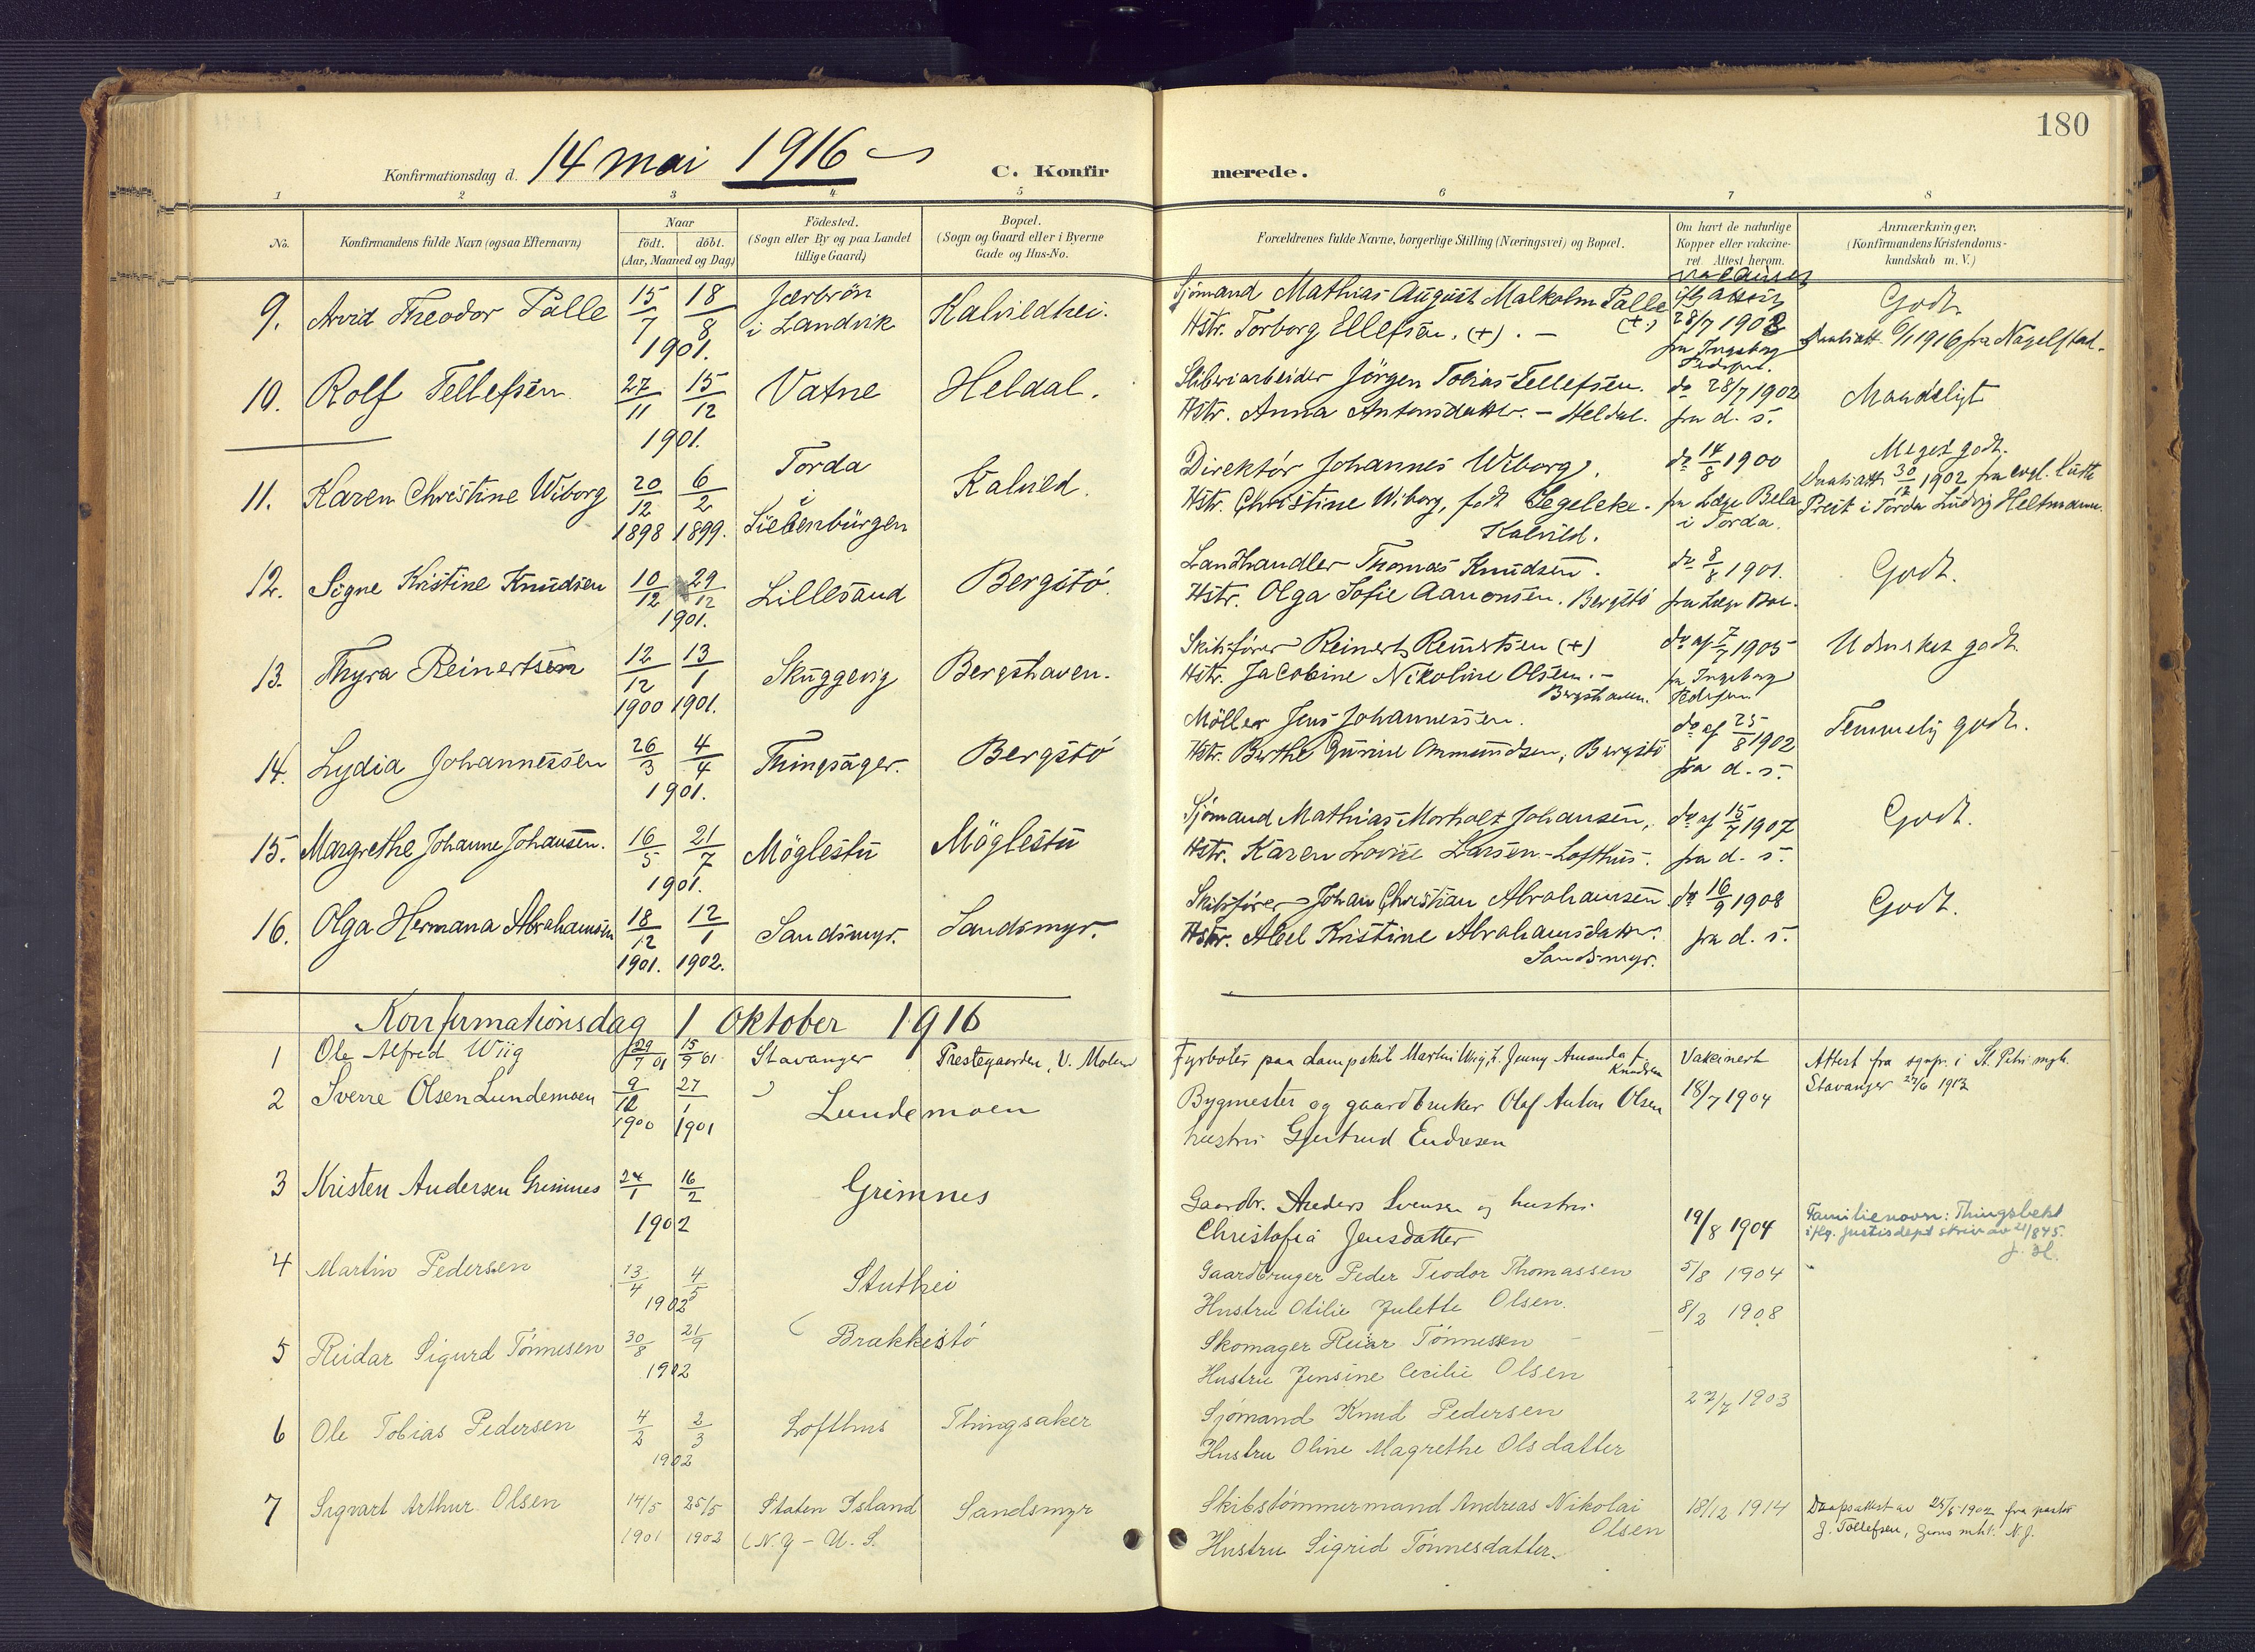 180
Konfirmationsdag d. 14 mai 1916
C. Konfirmerede.
1 2 3 4 5 6 7 8
No.
Konfirmandens fulde Navn (ogsaa Efternavn)
Naar
født. døbt.
(Aar, Maaned og Dag)
Födested.
(Sogn eller By og paa Landet
tillige Gaard)
Bopæl.
(Sogn og Gaard eller i Byerne
Gade og Hus-No.
Forældrenes fulde Navne, borgerlige Stilling (Næringsvei) og Bopæl.
Om havt de naturlige
Kopper eller vakcine-
ret. Attest herom.
Anmærkninger.
(Konfirmandens Kristendoms-
kundskab m. V.)
9. Arvid Theodor Palle 15/7 18/8 1901. Jærbrön i Landvik Kalvildhei.
Sjömand Mathias August Malkolm Palle (+)
Hstr. Torborg Ellefsen. (+). —
28/7 1902 fra Ingeborg Pedersen.
Godt.
1916 fra Nagelstad.
10. Rolf Tellefsen 27/11 15/12 1901. Vatne Heldal.
Sliberiarbeider Jörgen Tobias Tellefsen.
Hstr. Anna Antonsdatter. — Heldal.
do 28/7 1902
fra d. s.
Maadeligt
11. Karen Christine Wiborg 20/12 1898 6/2 1899. Torda i Siebenbürgen Kalvild.
Direktör Johannes Wiborg.
Hstr. Christine Wiborg, født Segeleke.
Kalvild.
do 14/8 1900
fra Læge Bela
i Torda.
Meget godt.
Daabsatt. 30/12 1902 fra evgl. luth.
Prest i Torda Ludvig Heltmann.
12. Signe Kristine Knudsen 10/12 29/12 1901. Lillesand Bergstö.
Landhandler Thomas Knudsen.
Hstr. Olga Sofie Aanonsen. Bergstö
do 8/8 1901.
fra Læge Boe.
Godt.
13. Thyra Reinertsen 12/12 1900 13/1 1901. Skuggevig Bergshaven.
Skibsfører Reinert Reinertsen (+)
Hstr. Jacobine Nikoline Olsen. —
Bergshaven.
do af 7/7 1905
fra Ingeborg
Pedersen
Udmerket godt.
14. Lydia Johannessen 26/3 4/4 1901. Thingsager. Bergstö
Möller Jens Johannessen.
Hstr. Berthe Gurine Ommundsen, Bergstö
do af 25/8 1902
fra d. s.
Temmelig godt.
15. Margrethe Johanne Johansen. 16/5 21/7 1901. Möglestu Möglestu
Sjömand Mathias Morholt Johansen,
Hstr. Karen Lovise Larsen - Lofthus.
do af 15/7 1907
fra d. s.
Godt.
16. Olga Hermana Abrahamsen 18/12 1901. 12/1 1902. Sandsmyr. Sandsmyr.
Skibsfører Johan Christian Abrahamsen.
Hstr. Abel Kristine Abrahamsdatter.
Sandsmyr.
do 16/9 1908
fra d. s.
Godt.
Konfirmationsdag 1 Oktober 1916
1 Ole Alfred Wiig 29/7 01 15/9 01 Stavanger Prestegaarden, V. Moland
Fyrbøter paa dampskib Martin Wiig, h. Jenny Amanda f. Knudsen
Vakcinert
Attest fra sognepr. i St. Petri mgh.
Stavanger 27/6 1912
2 Sverre Olsen Lundemoen 9/12 1900 27/1 1901 Lundemoen
Bygmester og gaardbruker Olaf Anton Olsen
hustru Gjertrud Endresen
18/7 1904
3 Kristen Andersen Grimnes 24/1 16/2 1902 Grimnes
Gaardbr. Anders Svensen og hustru
Christofia Jensdatter
19/8 1904
Familienavn: Thingsbekk
iflg. justisdept skriv av 21/8 45.
J. H.
4 Martin Pedersen 13/4 4/5 1902 Stuthei
Gaardbruger Peder Teodor Thomassen
Hustru Otilie Julette Olsen.
5/8 1904
5 Reidar Sigurd Tönnesen 30/8 21/9 1902 Brakkestö
Skomager Reiar Tönnesen
Hustru Jensine Cecilie Olsen
8/2 1908
6 Ole Tobias Pedersen 4/2 2/3 1902 Lofthus Thingsaker
Sjömand Knud Pedersen
Hustru Oline Magrethe Olsdatter
27/7 1903
7 Sigvart Arthur Olsen 14/5 1901 25/5 1902 Staten Island (N.Y - U. S. Sandsmyr
Skibstömmermand Andreas Nikolai
Olsen
Hustru Sigrid Tönnesdatter.
18/12 1914
Daapsattest av 25/5 1902 fra pastor
J. Tollefsen, Zions mht. N.J.